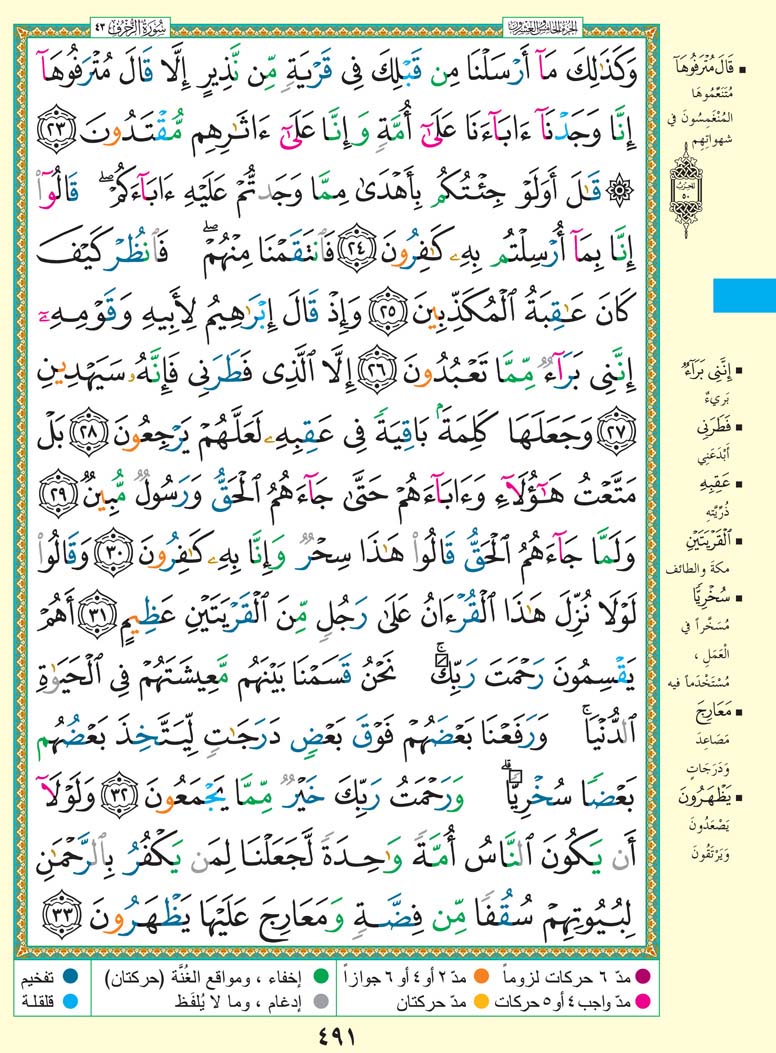 سُورَةُ الزُّخْرُفِ ٤٣
الجُزءُ الخَامِسُ وَالعِشْرُونَ
وَكَذَٰلِكَ مَآ أَرْسَلْنَا مِن قَبْلِكَ فِى قَرْيَةٍ مِّن نَّذِيرٍ إِلَّا قَالَ مُتْرَفُوهَآ
إِنَّا وَجَدْنَآ ءَابَآءَنَا عَلَىٰٓ أُمَّةٍ وَإِنَّا عَلَىٰٓ ءَاثَـٰرِهِم مُّقْتَدُونَ ٢٣
۞ قَـٰلَ أَوَلَوْ جِئْتُكُم بِأَهْدَىٰ مِمَّا وَجَدتُّمْ عَلَيْهِ ءَابَآءَكُمْ ۖ قَالُوٓا۟
إِنَّا بِمَآ أُرْسِلْتُم بِهِۦ كَـٰفِرُونَ ٢٤ فَٱنتَقَمْنَا مِنْهُمْ ۖ فَٱنظُرْ كَيْفَ
كَانَ عَـٰقِبَةُ ٱلْمُكَذِّبِينَ ٢٥ وَإِذْ قَالَ إِبْرَٰهِيمُ لِأَبِيهِ وَقَوْمِهِۦٓ
إِنَّنِى بَرَآءٌ مِّمَّا تَعْبُدُونَ ٢٦ إِلَّا ٱلَّذِى فَطَرَنِى فَإِنَّهُۥ سَيَهْدِينِ
٢٧ وَجَعَلَهَا كَلِمَةًۢ بَاقِيَةً فِى عَقِبِهِۦ لَعَلَّهُمْ يَرْجِعُونَ ٢٨ بَلْ
مَتَّعْتُ هَـٰٓؤُلَآءِ وَءَابَآءَهُمْ حَتَّىٰ جَآءَهُمُ ٱلْحَقُّ وَرَسُولٌ مُّبِينٌ ٢٩
وَلَمَّا جَآءَهُمُ ٱلْحَقُّ قَالُوا۟ هَـٰذَا سِحْرٌ وَإِنَّا بِهِۦ كَـٰفِرُونَ ٣٠ وَقَالُوا۟
لَوْلَا نُزِّلَ هَـٰذَا ٱلْقُرْءَانُ عَلَىٰ رَجُلٍ مِّنَ ٱلْقَرْيَتَيْنِ عَظِيمٍ ٣١ أَهُمْ
يَقْسِمُونَ رَحْمَتَ رَبِّكَ ۚ نَحْنُ قَسَمْنَا بَيْنَهُم مَّعِيشَتَهُمْ فِى ٱلْحَيَوٰةِ
ٱلدُّنْيَا ۚ وَرَفَعْنَا بَعْضَهُمْ فَوْقَ بَعْضٍ دَرَجَـٰتٍ لِّيَتَّخِذَ بَعْضُهُم
بَعْضًا سُخْرِيًّا ۗ وَرَحْمَتُ رَبِّكَ خَيْرٌ مِّمَّا يَجْمَعُونَ ٣٢ وَلَوْلَآ
أَن يَكُونَ ٱلنَّاسُ أُمَّةً وَٰحِدَةً لَّجَعَلْنَا لِمَن يَكْفُرُ بِٱلرَّحْمَـٰنِ
لِبُيُوتِهِمْ سُقُفًا مِّن فِضَّةٍ وَمَعَارِجَ عَلَيْهَا يَظْهَرُونَ ٣٣
▪ قَالَ مُتْرَفُوهَآ
مُتَنَعِّمُوهَا
المُنْغَمِسُونَ فِي
شهواتِهِم
الحِزْبُ
٥٠
▪ إِنَّنِى بَرَآءٌ
بَرِيءٌ
▪ فَطَرَنِى
أَبْدَعَنِي
▪ عَقِبِهِ
ذُرِّيَّتِهِ
▪ ٱلْقَرْيَتَيْنِ
مكة والطائف
▪ سُخْرِيًّا
مُسَخَّراً فِي
الْعَمَلِ ،
مُسْتَخْدَماً فيه
▪ مَعَارِجَ
مَصَاعِدَ
وَدَرَجَاتٍ
▪ يَظْهَرُونَ
يَصْعَدُونَ
وَيَرْتَقُونَ
مدّ ٦ حركات لزوماً
مدّ ٢ أو ٤ أو ٦ جوازاً
إخفاء ، ومواقع الغُنَّة (حركتان)
تفخيم
مدّ واجب ٤ أو ٥ حركات
مدّ حركتان
إدغام ، وما لا يُلفَظ
قلقلة
٤٩١